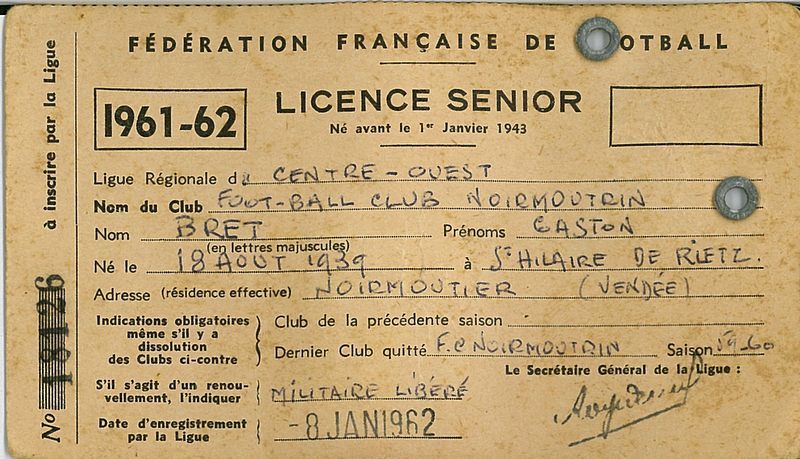 FÉDÉRATION FRANÇAISE DE OTBALL
1961-62
LICENCE SENIOR
Né avant le 1er Janvier 1943
Ligue Régionale du CENTRE-OUEST
Nom du Club FOOT-BALL CLUB NOIRMOUTRIN
Nom BRET Prénoms GASTON
(en lettres majuscules)
Né le 18 AOUT 1939 à St HILAIRE DE RIETZ.
Adresse (résidence effective) NOIRMOUTIER (VENDÉE)
Indications obligatoires
même s'il y a
dissolution
des Clubs ci-contre
Club de la précédente saison
Dernier Club quitté F.C NOIRMOUTRIN Saison 59-60
Le Secrétaire Général de la Ligue :
S'il s'agit d'un renou-
vellement, l'indiquer
MILITAIRE LIBÉRÉ
Date d'enregistrement
par la Ligue
-8 JAN 1962
No 18126 à inscrire par la Ligue